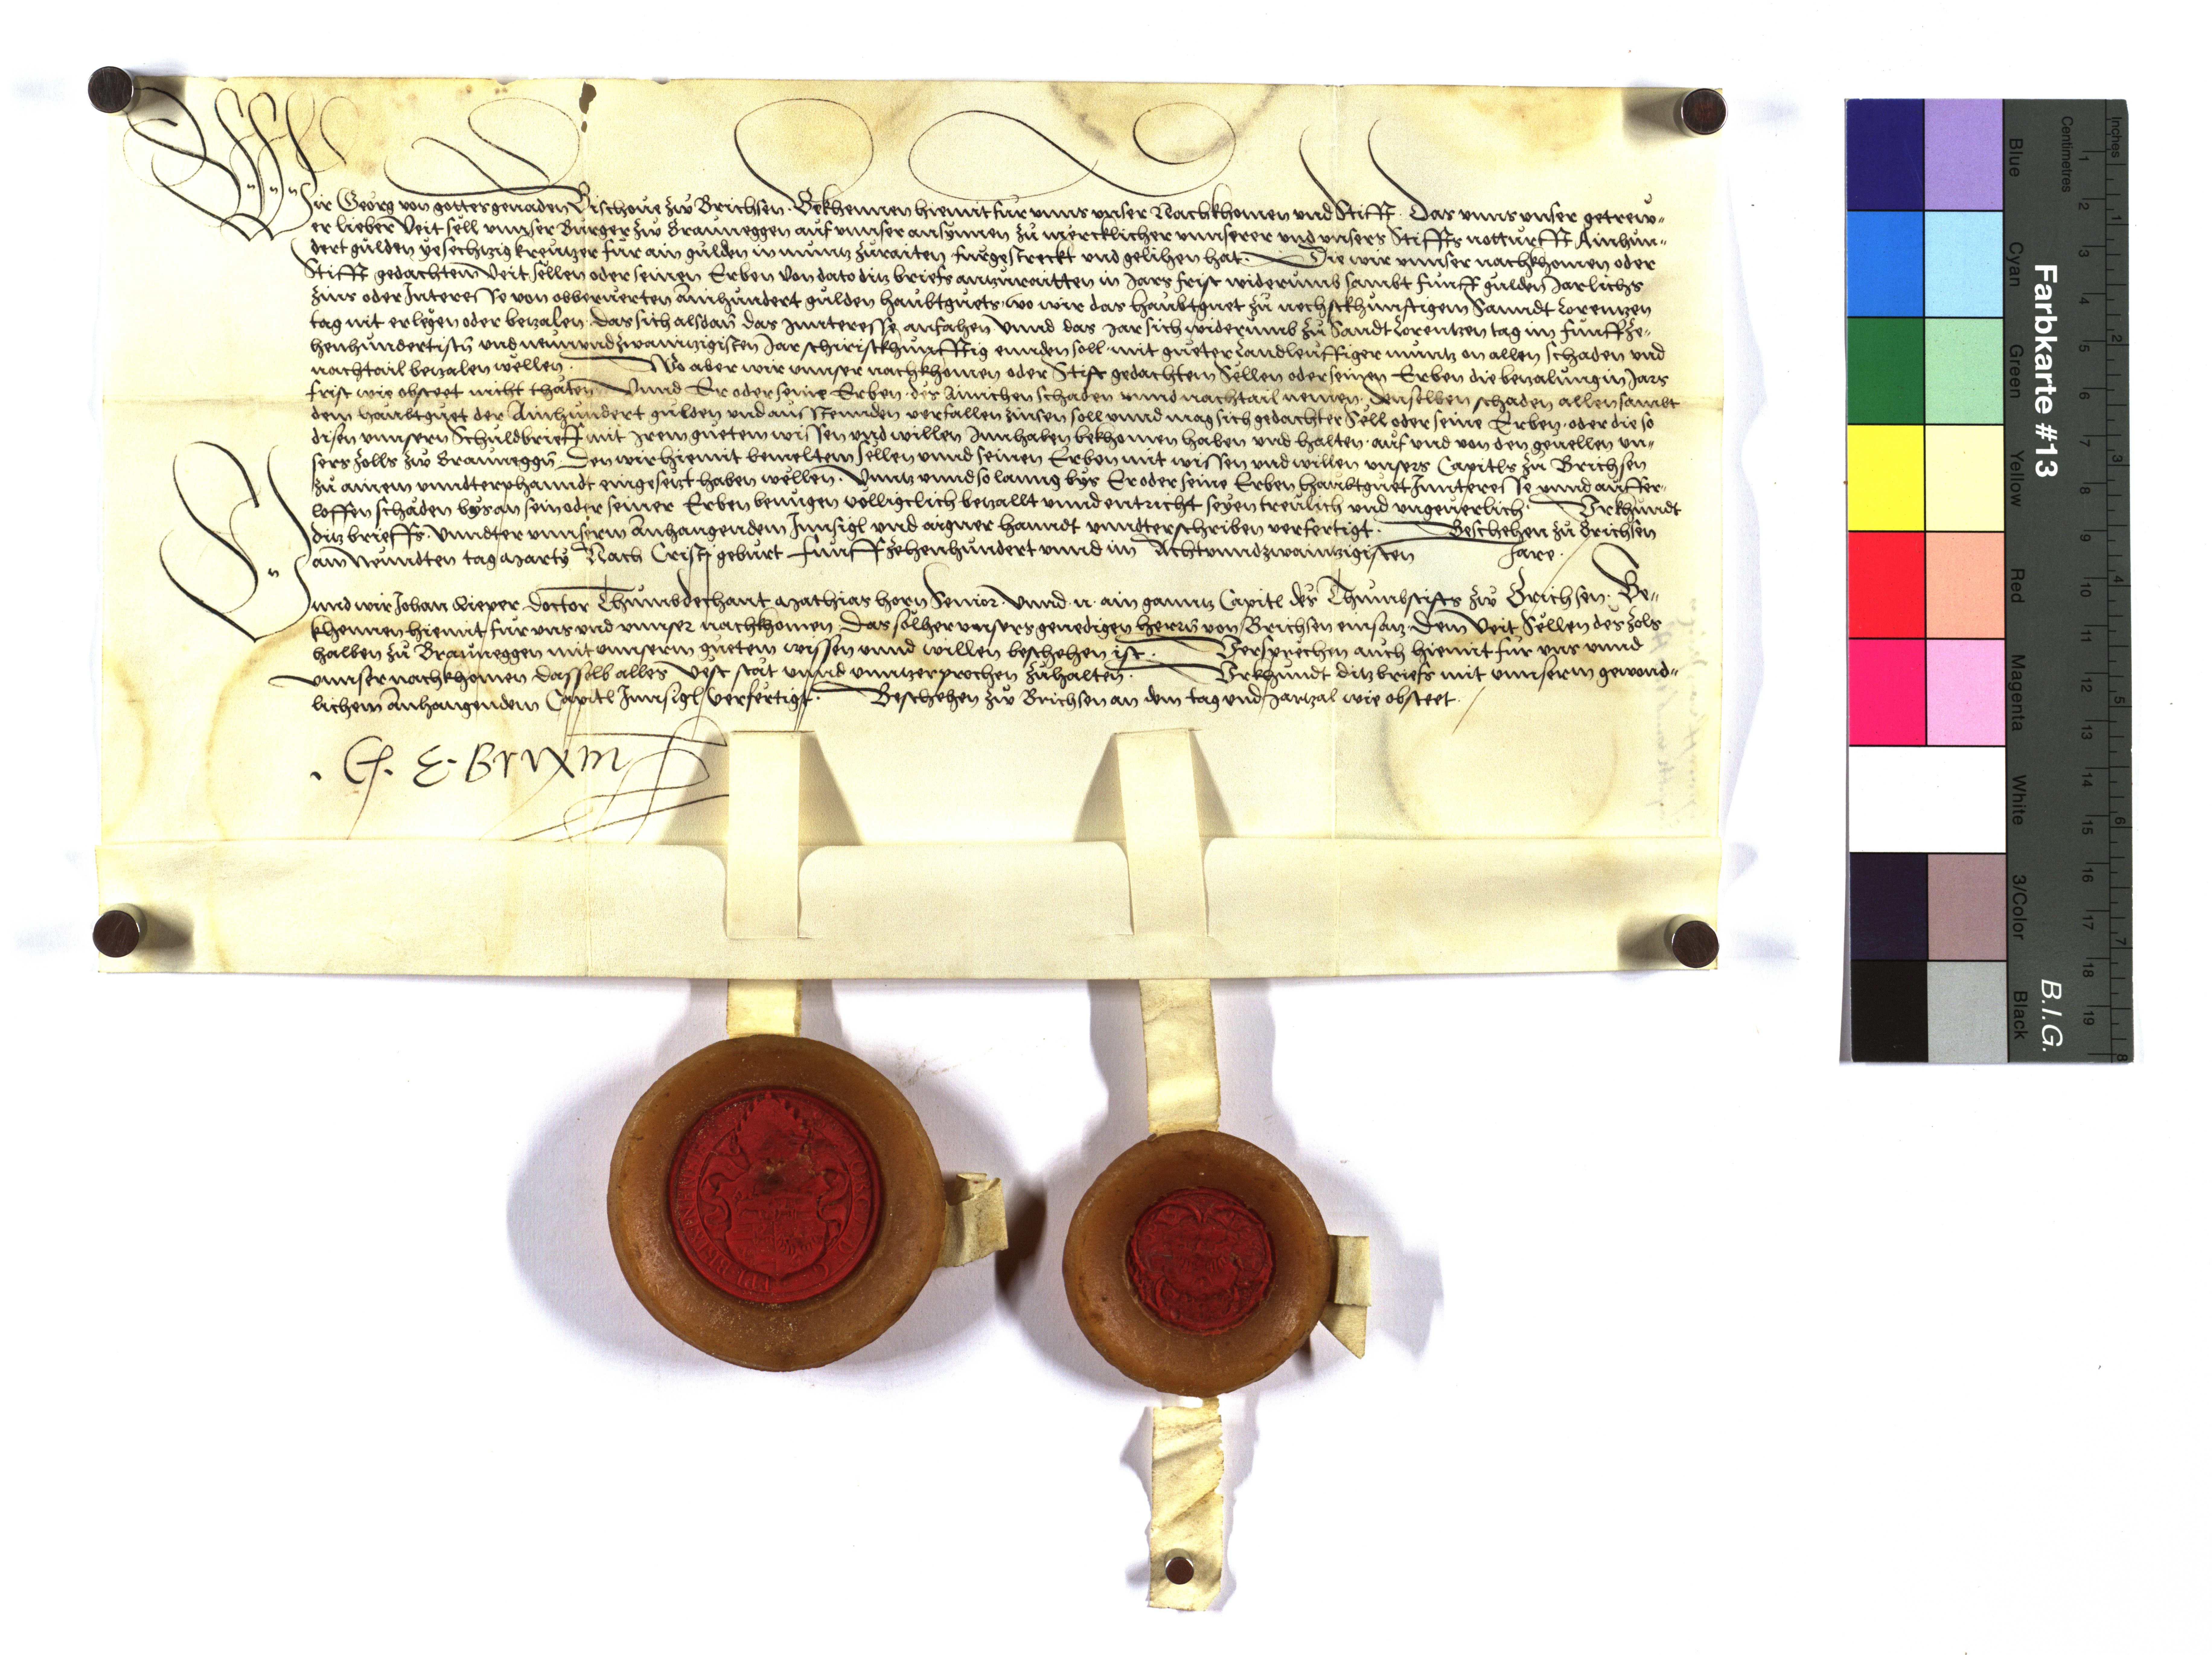 Wir Georg von gottes genaden Bischove zw Brichsen. Bekhennen hiemit fur unns unser Nachkhomen und Stifft. Das unns unser getrew-
er lieber Veit Sell unnser Burger zw Brauneggen auf unnser ansynnen zu mercklicher unnserer und unsers Stiffts notturfft Ainhun-
dert gulden ye sechtzig kreutzer fur ain gulden in muntz zuraiten furgestreckt und gelihen hat. Die wir unnser nachkhomen oder
Stifft gedachtem Veit Sellen oder seinen Erben von dato ditz briefs antzuraitten in Jars frist widerumb sambt funff gulden Jarlichs
zins oder Interesse von obberuerten Ainhundert gulden haubtguets, wo wir das haubtguet zu nechstkhunfftigem Sanndt Lorentzen
tag nit erlegen oder betzalen. Das sich alsdan das Innteresse anfahen unnd das Jar sich widerumb zu Sandt Lorentzen tag im funffze-
henhundertistn und neunundzwanntzigisten Jar schiristkhunfftig ennden soll. mit gueter Landleuffiger muntz on allen schaden und
nachtail betzalen wellen. Wo aber wir unnser nachkhomen oder Stift gedachtem Sellen oder seinen Erben die betzalung in Jars
frist wie obsteet nicht thäten Unnd Er oder seine Erben des Ainichen schaden unnd nachtail nemen. Denselben schaden allen sambt
dem haubtguet der Ainhundert gulden und aussteenden verfallen zinsen soll unnd mag sich gedachter Sell oder seine Erben. oder die so
disen unnsern Schuldbrieff mit Irem guetem wissen und willen Innhaben bekhomen haben und halten. auf und von den gevellen un-
sers zolls zw Brauneggn. Den wir hiemit bemeltem Sellen unnd seinen Erben mit wissen und willen unsers Capitls zu Brichsen
zu ainem unndterphanndt eingesetzt haben wellen. Unntz unnd so lanng bys Er oder seine Erben haubtguet Innteresse unnd auffer-
loffen schäden bys an sein oder seiner Erben benuegen völligclich betzallt unnd entricht seyen treulich und ungeverlich. Urkhundt
ditz brieffs. Unndter unnserm Anhangendem Innsigl und aigner hanndt unndterschriben verfertigt. Beschehen zu Brichsen
am Neundten tag Marty Nach Cristj geburt Funffzehenhundert unnd im Achtunndzwaintzigisten Jare.
Unnd wir Johan Doctor Thumbdechant Mathias horn Senior. Unnd n. ain ganntz Capitl des Thumbstifts zw Brichsen. Be-
khennen hiemit fur uns und unnser nachkhomen. Das solher unsers genedigen herrn von Brichsen einsatz. Dem Veit Sellen des zols
halben zu Brauneggen mit unnserm guetem wissen unnd willen beschehen ist. Versprechen auch hiemit fur uns unnd
unnser nachkhomen dasselb alles vest stät unnd unntzerprochen zuhalten. Urkhundt ditz briefs mit unnserm gewond-
lichem Anhangendem Capitl Innsigl verfertigt. Beschehen zw Brichsen an dem tag und Jartzal wie obsteet.
. G. E. Brixin
Farbkarte #13
B.I.G.
Inches 1 2 3 4 5 6 7 8
Centimetres 1 2 3 4 5 6 7 8 9 10 11 12 13 14 15 16 17 18 19
Blue Cyan Green Yellow Red Magenta White 3/Color Black